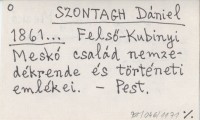 SZONTAGH Dániel
1861... Felső-Kubinyi
Meskó család nemze-
dékrende és történeti
emlékei. – Pest.